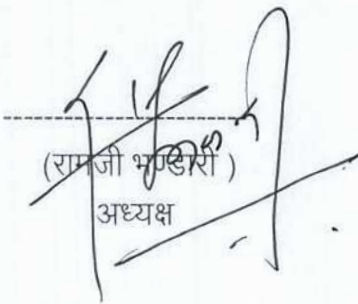 (रामजी भण्डारी )
अध्यक्ष